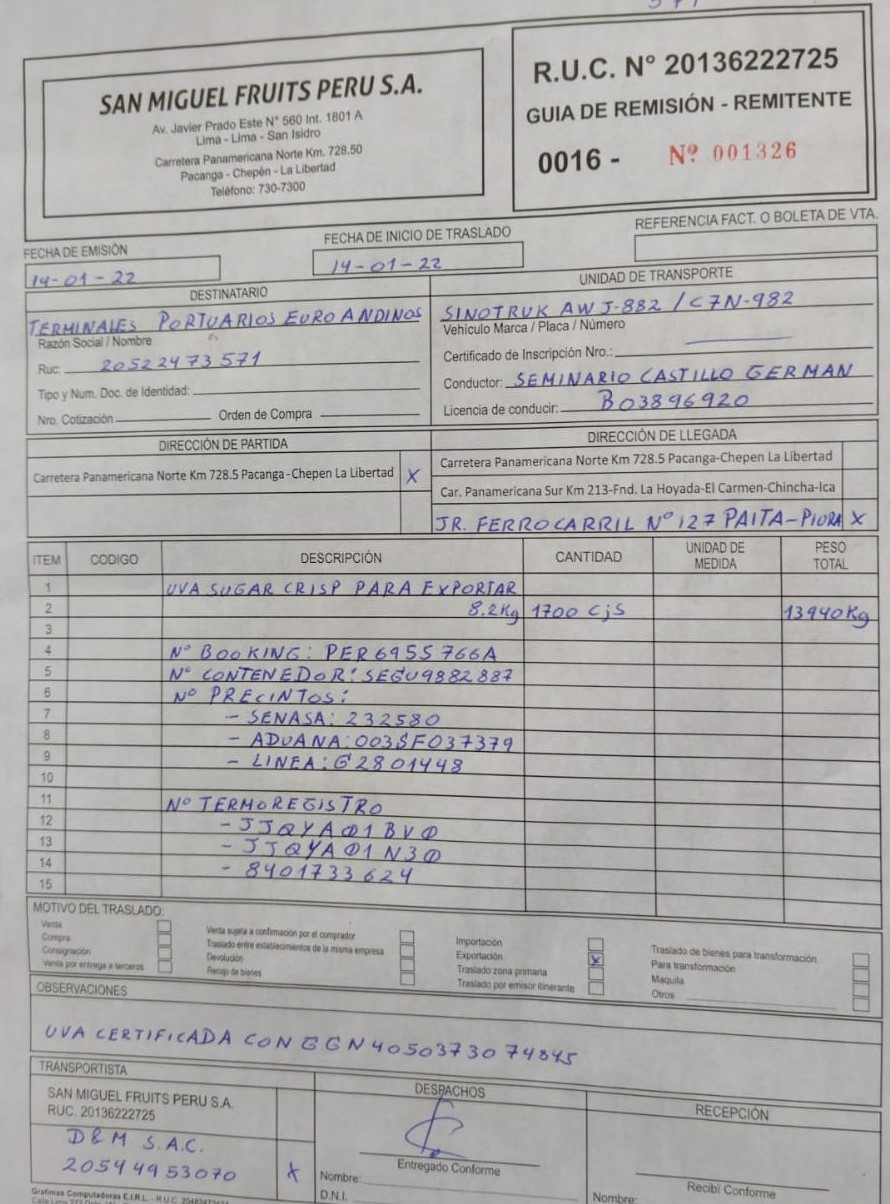 SAN MIGUEL FRUITS PERU S.A.
Av. Javier Prado Este N° 560 Int. 1801 A
Lima - Lima - San Isidro
Carretera Panamericana Norte Km. 728.50
Pacanga - Chepén - La Libertad
Teléfono: 730-7300
R.U.C. N° 20136222725
GUIA DE REMISIÓN - REMITENTE
0016 - Nº 001326
FECHA DE EMISIÓN
14-01-22
FECHA DE INICIO DE TRASLADO
14-01-22
REFERENCIA FACT. O BOLETA DE VTA.
DESTINATARIO
TERMINALES PORTUARIOS EUROANDINOS
Razón Social / Nombre
Ruc: 20522473571
Tipo y Num. Doc. de Identidad:
Nro. Cotización Orden de Compra
UNIDAD DE TRANSPORTE
SINOTRUK AWJ-882 / C7N-982
Vehículo Marca / Placa / Número
Certificado de Inscripción Nro.:
Conductor: SEMINARIO CASTILLO GERMAN
Licencia de conducir: B03896920
DIRECCIÓN DE PARTIDA
Carretera Panamericana Norte Km 728.5 Pacanga-Chepen La Libertad X
DIRECCIÓN DE LLEGADA
Carretera Panamericana Norte Km 728.5 Pacanga-Chepen La Libertad
Car. Panamericana Sur Km 213-Fnd. La Hoyada-El Carmen-Chincha-Ica
JR. FERROCARRIL N° 127 PAITA-PIURA X
ITEM CODIGO DESCRIPCIÓN CANTIDAD UNIDAD DE MEDIDA PESO TOTAL
1 UVA SUGAR CRISP PARA EXPORTAR
2 8.2Kg 1700 CjS 13940Kg
3
4 N° BOOKING: PER6955766A
5 N° CONTENEDOR: SEGU9882887
6 N° PRECINTOS:
7 - SENASA: 232580
8 - ADUANA: 003SF037379
9 - LINEA: G2801448
10
11 N° TERMOREGISTRO
12 - JJQYA01BV0
13 - JJQYA01N30
14 - 8401733624
15
MOTIVO DEL TRASLADO:
Venta
Compra
Consignación
Venta por entrega a terceros
Venta sujeta a confirmación por el comprador
Traslado entre establecimientos de la misma empresa
Devolución
Recojo de bienes
Importación
Exportación X
Traslado zona primaria
Traslado por emisor itinerante
Traslado de bienes para transformación
Para transformación
Maquila
Otros
OBSERVACIONES
UVA CERTIFICADA CON GGN 4050373074845
TRANSPORTISTA
SAN MIGUEL FRUITS PERU S.A.
RUC. 20136222725
D&M S.A.C.
20544953070 X
DESPACHOS
Entregado Conforme
Nombre:
D.N.I.
RECEPCIÓN
Recibí Conforme
Nombre:
Grafimas Computadoras E.I.R.L. - R.U.C.